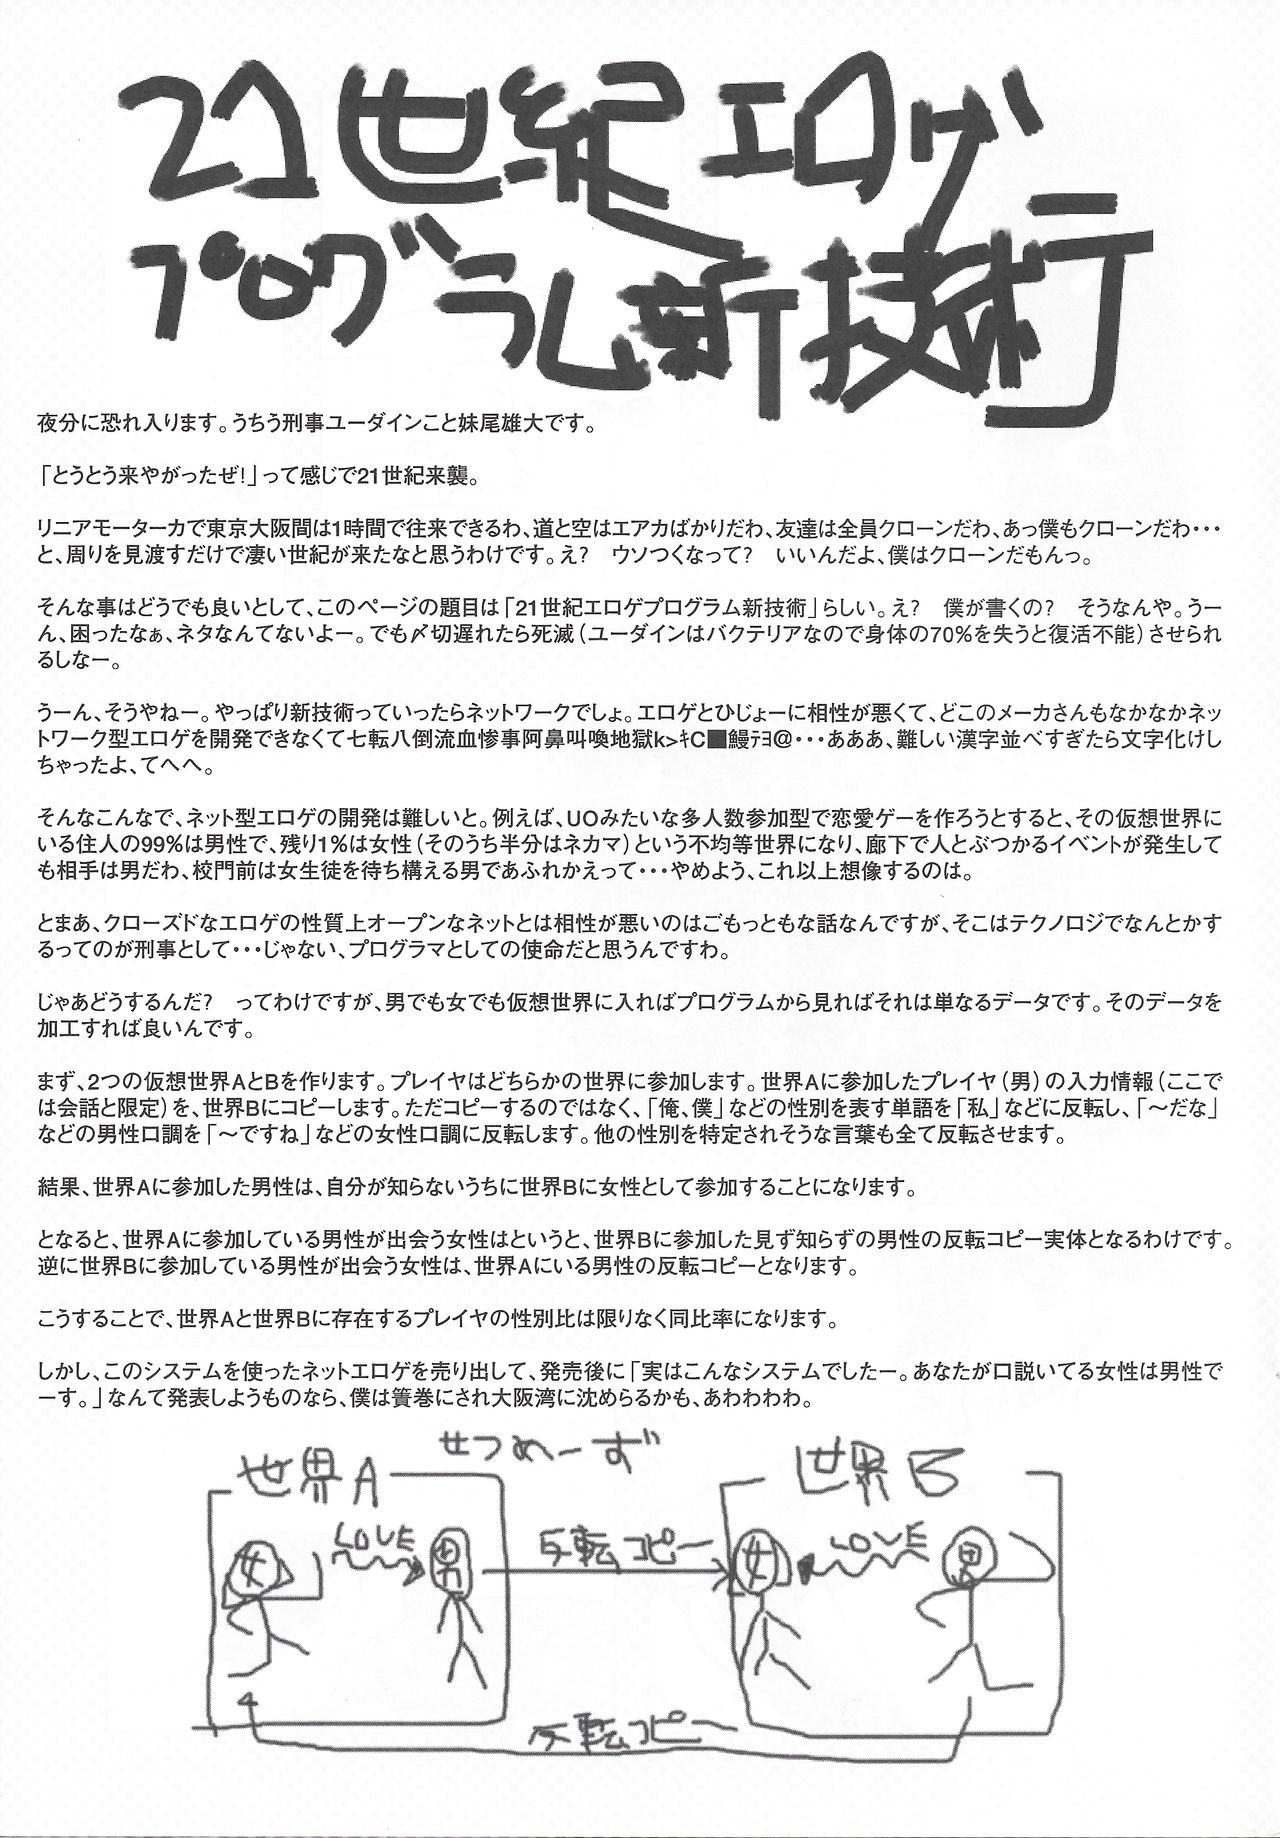 21世紀エロゲ
プログラム新技術
夜分に恐れ入ります。うちう刑事ユーダインこと妹尾雄大です。
「とうとう来やがったぜ!」って感じで21世紀来襲。
リニアモーターカで東京大阪間は1時間で往来できるわ、道と空はエアカばかりだわ、友達は全員クローンだわ、あっ僕もクローンだわ・・・
と、周りを見渡すだけで凄い世紀が来たなと思うわけです。え?　ウソつくなって?　いいんだよ、僕はクローンだもんっ。
そんな事はどうでも良いとして、このページの題目は「21世紀エロゲプログラム新技術」らしい。え?　僕が書くの?　そうなんや。うー
ん、困ったなぁ、ネタなんてないよー。でも〆切遅れたら死滅（ユーダインはバクテリアなので身体の70%を失うと復活不能）させられ
るしなー。
うーん、そうやねー。やっぱり新技術っていったらネットワークでしょ。エロゲとひじょーに相性が悪くて、どこのメーカさんもなかなかネッ
トワーク型エロゲを開発できなくて七転八倒流血惨事阿鼻叫喚地獄k>ｷC■鰻ﾃﾖ@・・・あああ、難しい漢字並べすぎたら文字化けし
ちゃったよ、てへへ。
そんなこんなで、ネット型エロゲの開発は難しいと。例えば、UOみたいな多人数参加型で恋愛ゲーを作ろうとすると、その仮想世界に
いる住人の99%は男性で、残り1%は女性（そのうち半分はネカマ）という不均等世界になり、廊下で人とぶつかるイベントが発生して
も相手は男だわ、校門前は女生徒を待ち構える男であふれかえって・・・やめよう、これ以上想像するのは。
とまあ、クローズドなエロゲの性質上オープンなネットとは相性が悪いのはごもっともな話なんですが、そこはテクノロジでなんとかす
るってのが刑事として・・・じゃない、プログラマとしての使命だと思うんですわ。
じゃあどうするんだ?　ってわけですが、男でも女でも仮想世界に入ればプログラムから見ればそれは単なるデータです。そのデータを
加工すれば良いんです。
まず、2つの仮想世界AとBを作ります。プレイヤはどちらかの世界に参加します。世界Aに参加したプレイヤ（男）の入力情報（ここで
は会話と限定）を、世界Bにコピーします。ただコピーするのではなく、「俺、僕」などの性別を表す単語を「私」などに反転し、「～だな」
などの男性口調を「～ですね」などの女性口調に反転します。他の性別を特定されそうな言葉も全て反転させます。
結果、世界Aに参加した男性は、自分が知らないうちに世界Bに女性として参加することになります。
となると、世界Aに参加している男性が出会う女性はというと、世界Bに参加した見ず知らずの男性の反転コピー実体となるわけです。
逆に世界Bに参加している男性が出会う女性は、世界Aにいる男性の反転コピーとなります。
こうすることで、世界Aと世界Bに存在するプレイヤの性別比は限りなく同比率になります。
しかし、このシステムを使ったネットエロゲを売り出して、発売後に「実はこんなシステムでしたー。あなたが口説いてる女性は男性で
ーす。」なんて発表しようものなら、僕は簀巻にされ大阪湾に沈めらるかも、あわわわわ。
せつめーず
世界A
世界B
女
LOVE
男
反転コピー
女
LOVE
男
反転コピー